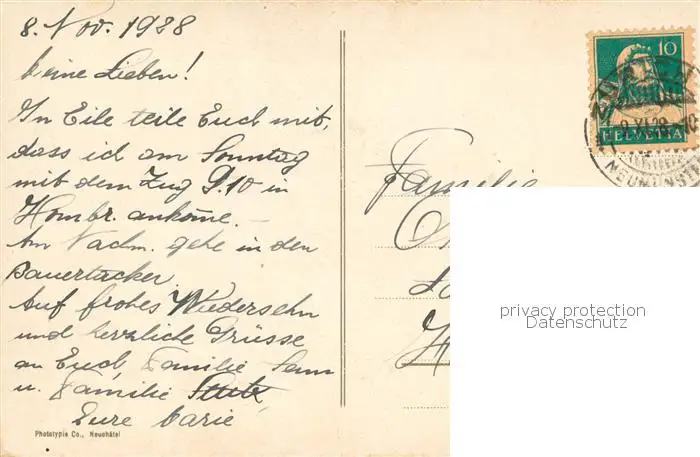 8. Nov. 1928
Meine Lieben!
In Eile teile Euch mit,
dass ich am Sonntag
mit dem Zug 9.10 in
Hombr. ankome. –
Am Nachm. gehe in den
Bauertacker.
Auf frohes Wiedersehn
und herzliche Grüsse
an Euch, Familie
u. Familie
Eure Marie
Phototypie Co., Neuchâtel
10
HELVETIA
Familie
privacy protection
Datenschutz